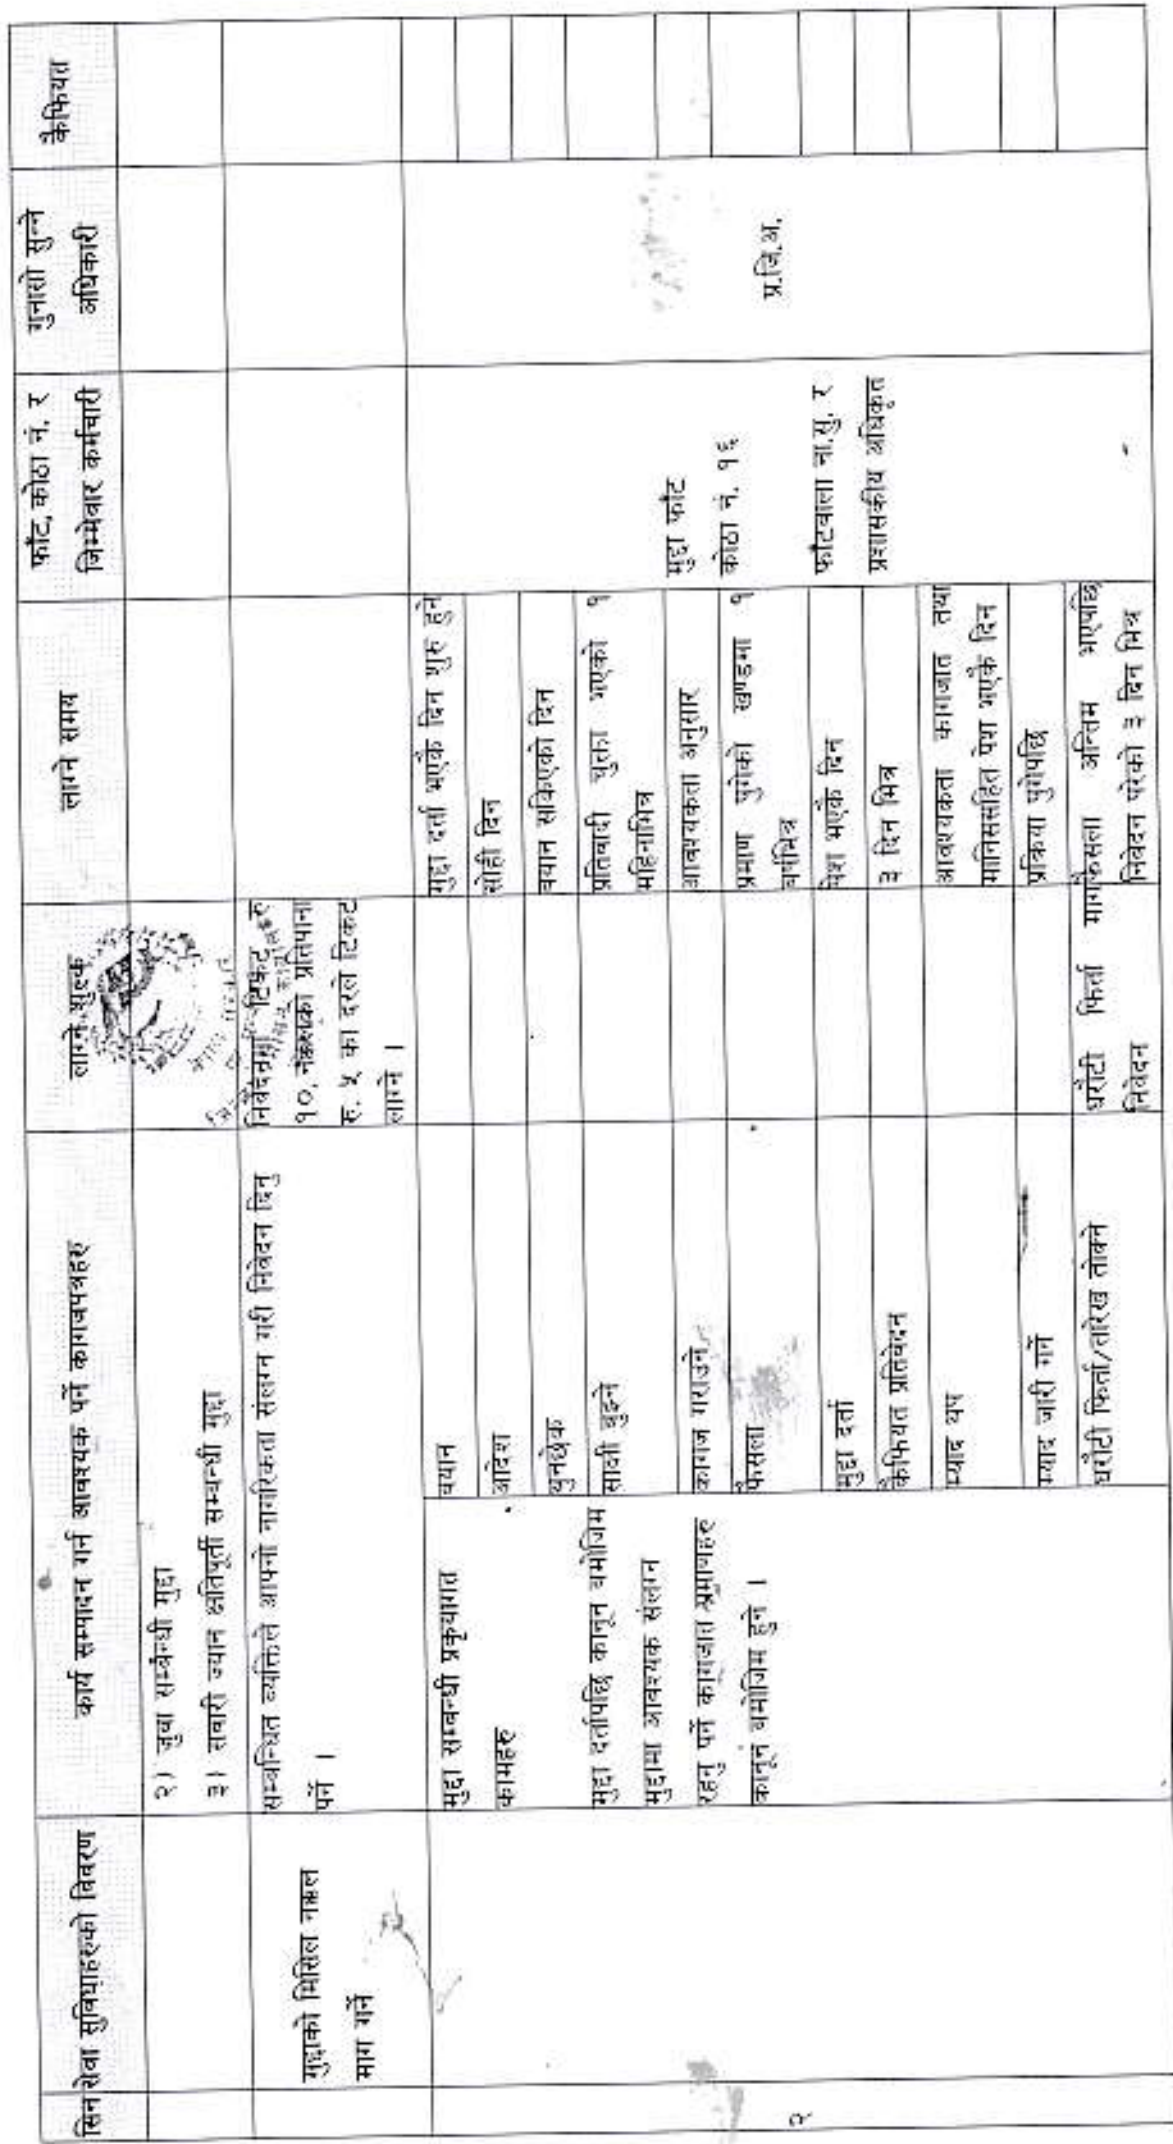 सिन
सेवा सुविधाहरुको विवरण
कार्य सम्पादन गर्न आवश्यक पर्ने कागजपत्रहरु
लाग्ने शुल्क
लाग्ने समय
फाँट, कोठा नं. र
जिम्मेवार कर्मचारी
गुनासो सुन्ने
अधिकारी
कैफियत
२) जुवा सम्बन्धी मुद्दा
३) सवारी ज्यान क्षतिपूर्ती सम्बन्धी मुद्दा
मुद्दाको मिसिल नक्कल
माग गर्ने
सम्बन्धित व्यक्तिले आफ्नो नागरिकता संलग्न गरी निवेदन दिनु
पर्ने ।
निवेदनमा टिकट रु
१०, नक्कलका प्रतिपाना
रु. ५ का दरले टिकट
लाग्ने ।
२
मुद्दा सम्बन्धी प्रकृयागत
कामहरु
मुद्दा दर्तापछि कानून बमोजिम
मुद्दामा आवश्यक संलग्न
रहनु पर्ने कागजात प्रमाणहरु
कानून बमोजिम हुने ।
बयान
मुद्दा दर्ता भएकै दिन शुरु हुने
आदेश
सोही दिन
थुनछेक
बयान सकिएको दिन
साक्षी बुझ्ने
प्रतिवादी चुक्ता भएको १
महिनाभित्र
कागज गराउने
आवश्यकता अनुसार
फैसला
प्रमाण पुगेको खण्डमा १
वर्षभित्र
मुद्दा दर्ता
पेश भएकै दिन
कैफियत प्रतिवेदन
३ दिन भित्र
म्याद थप
आवश्यकता कागजात तथा
मानिससहित पेश भएकै दिन
म्याद जारी गर्ने
प्रक्रिया पुगेपछि
धरौटी फिर्ता/तारेख तोक्ने
धरौटी फिर्ता माग
निवेदन
फैसला अन्तिम भएपछि
निवेदन परेको ३ दिन भित्र
मुद्दा फाँट
कोठा नं. १६
फाँटवाला ना.सु. र
प्रशासकीय अधिकृत
प्र.जि.अ.